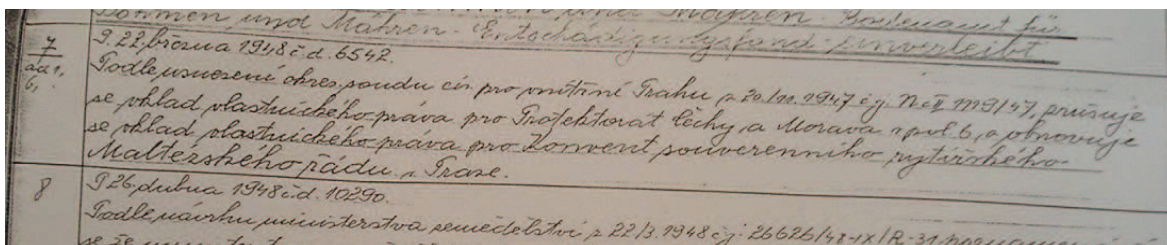 Böhmen und Mähren - Bodenamt für
Böhmen und Mähren - Entschädigungsfond - einverleibt
7
ad 1,
6,
P. 22. března 1948 č.d. 6542.
Podle usnesení okres. soudu civ. pro vnitřní Prahu z 20./11. 1947 č.j. Nc II 1119/47, zrušuje
se vklad vlastnického práva pro Protektorát Čechy a Morava v pol. 6, a obnovuje
se vklad vlastnického práva pro Konvent souverenního rytířského
Maltézského řádu v Praze.
8
P. 26. dubna 1948 č.d. 10290.
Podle návrhu ministerstva zemědělství z 22/3. 1948 č.j. 26626/48-IX/R-31
se že